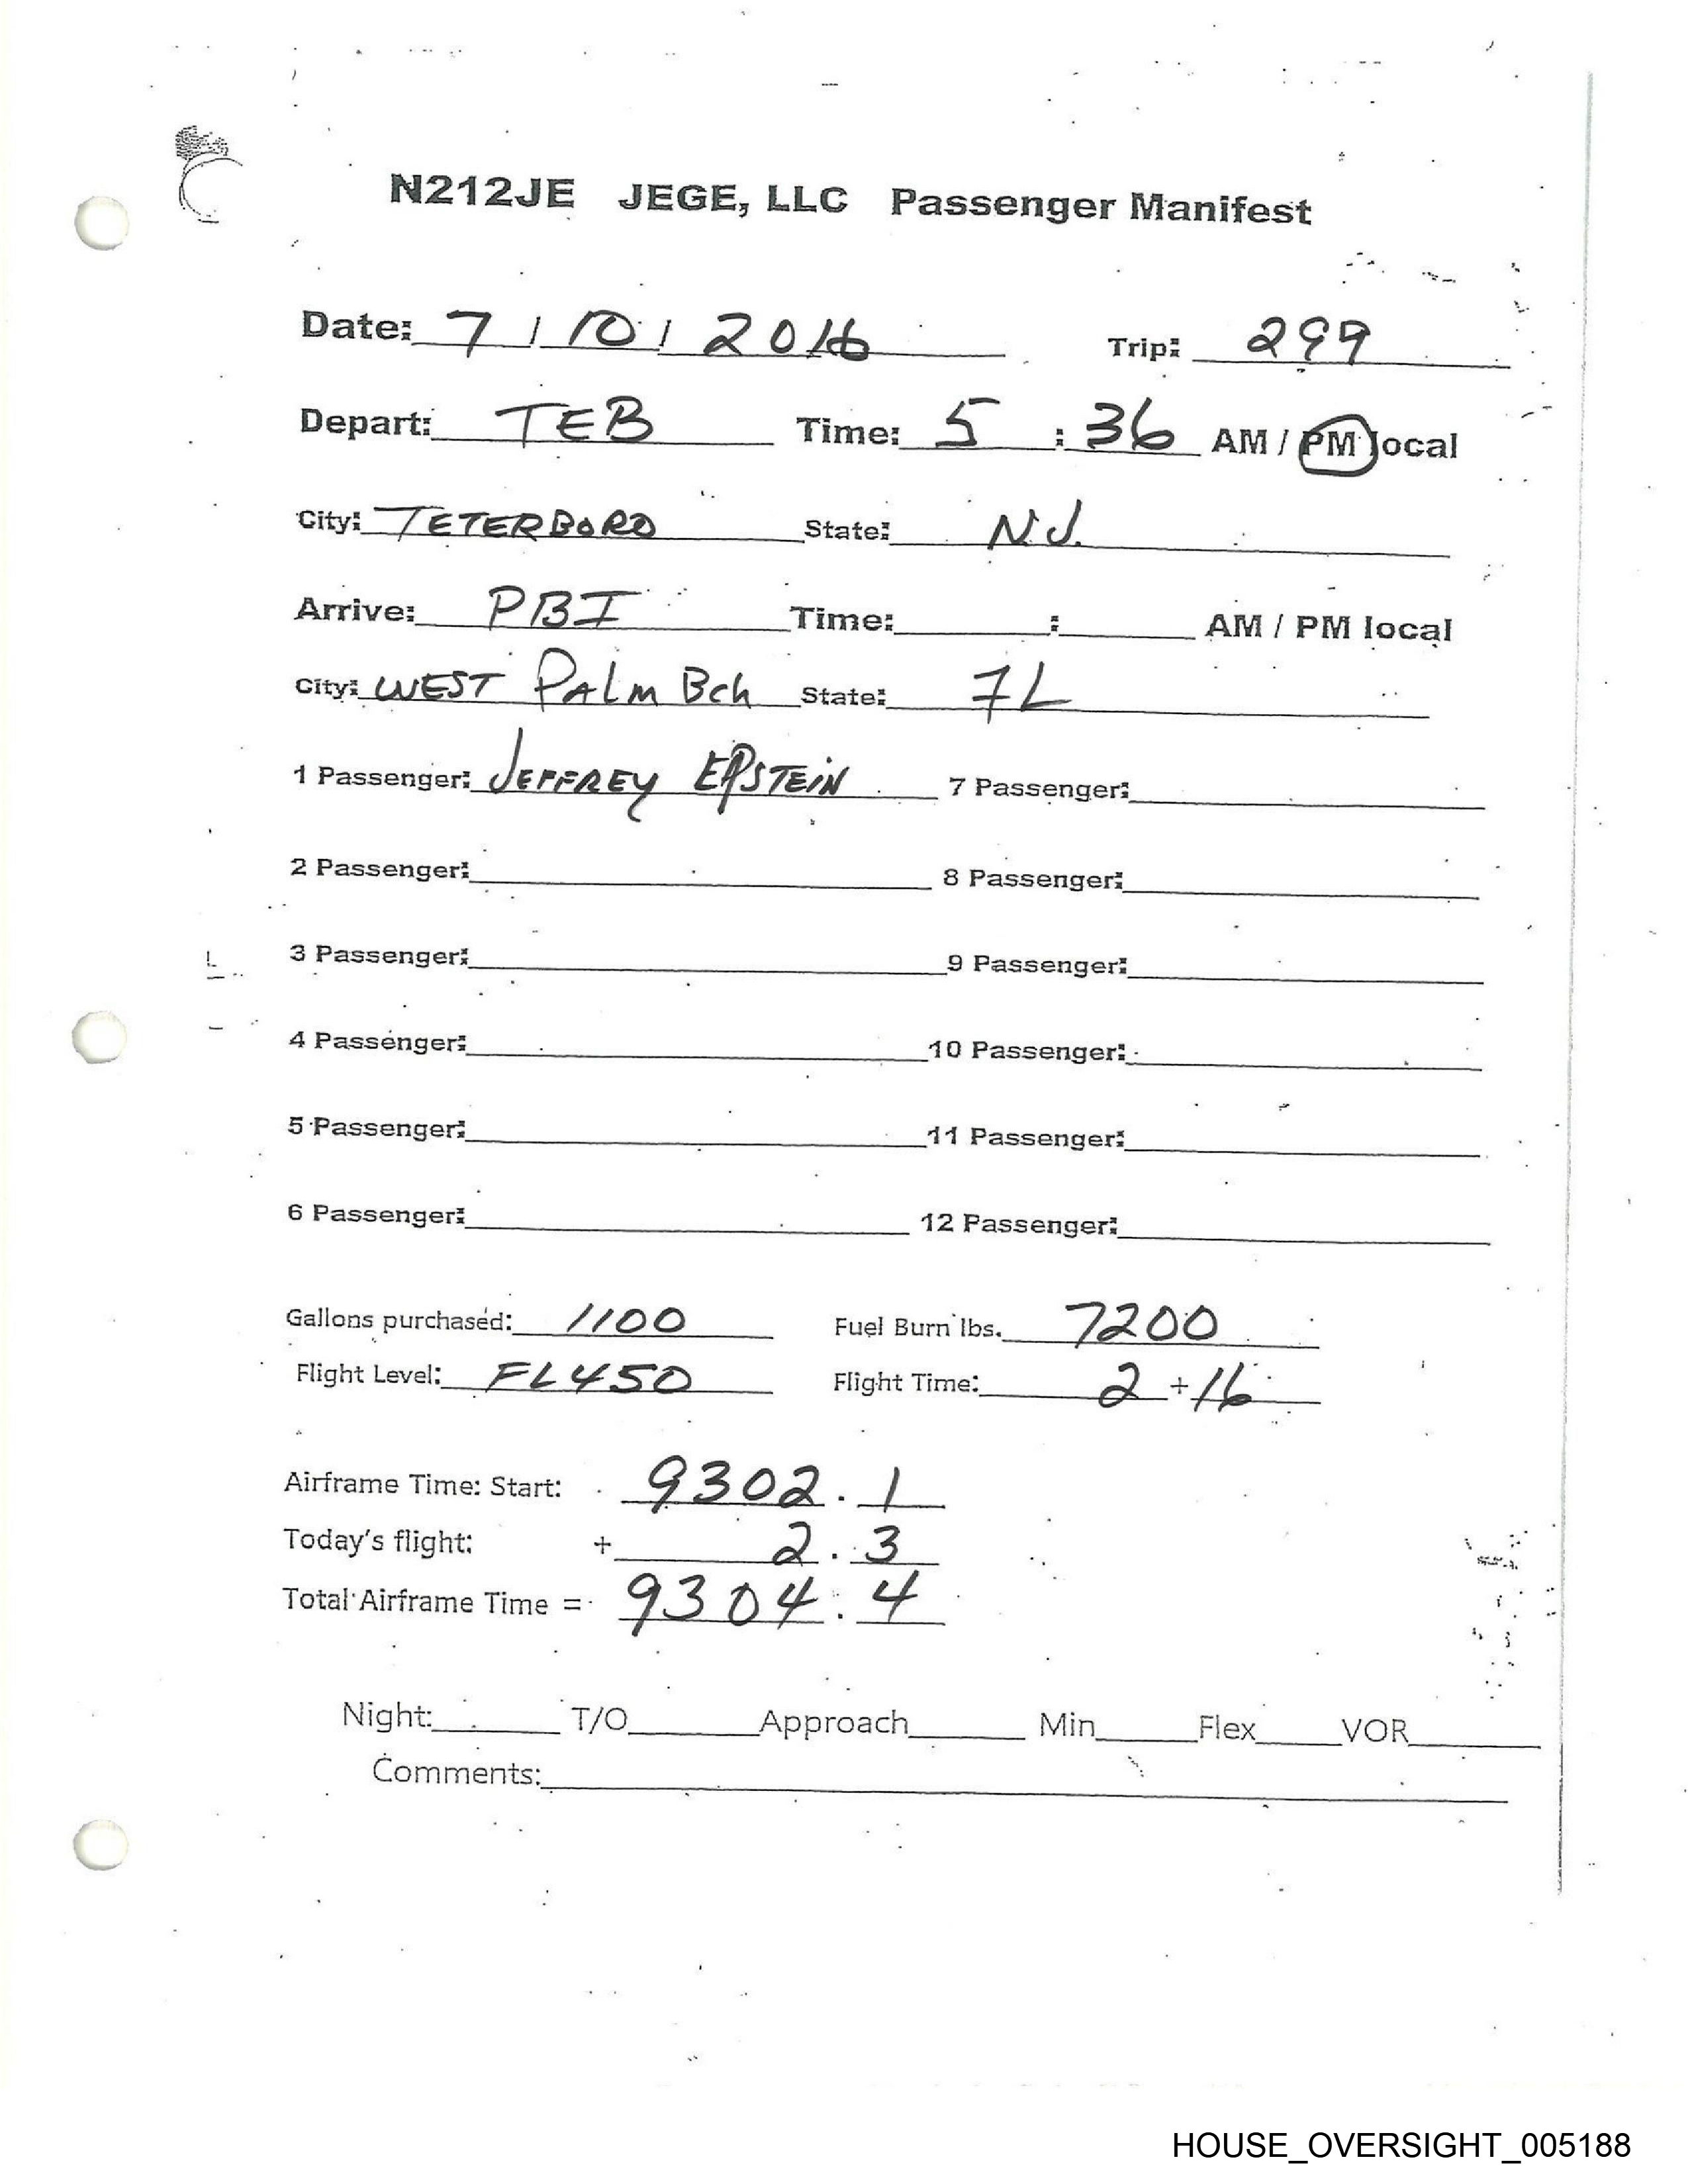 N212JE JEGE, LLC Passenger Manifest
Date: 7 / 10 / 2016 Trip: 299
Depart: TEB Time: 5 : 36 AM / PM local
City: TETERBORO State: NJ.
Arrive: PBI Time: : AM / PM local
City: WEST PALM Bch State: FL
1 Passenger: JEFFREY EPSTEIN 7 Passenger:
2 Passenger: 8 Passenger:
3 Passenger: 9 Passenger:
4 Passenger: 10 Passenger:
5 Passenger: 11 Passenger:
6 Passenger: 12 Passenger:
Gallons purchased: 1100 Fuel Burn lbs. 7200
Flight Level: FL450 Flight Time: 2 + 16
Airframe Time: Start: 9302 . 1
Today's flight: + 2 . 3
Total Airframe Time = 9304 . 4
Night: T/O Approach Min Flex VOR
Comments:
HOUSE_OVERSIGHT_005188